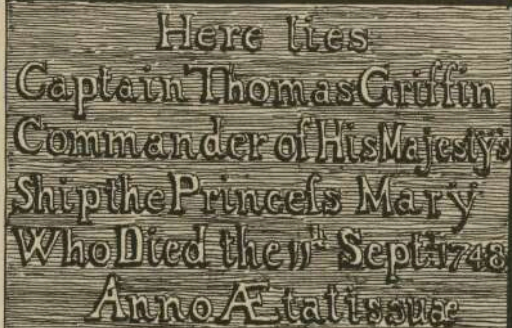 Here lies
Captain Thomas Griffin
Commander of His Majesty's
Ship the Princeſs Mary
Who Died the 11th Sept: 1748
Anno Ætatis suæ